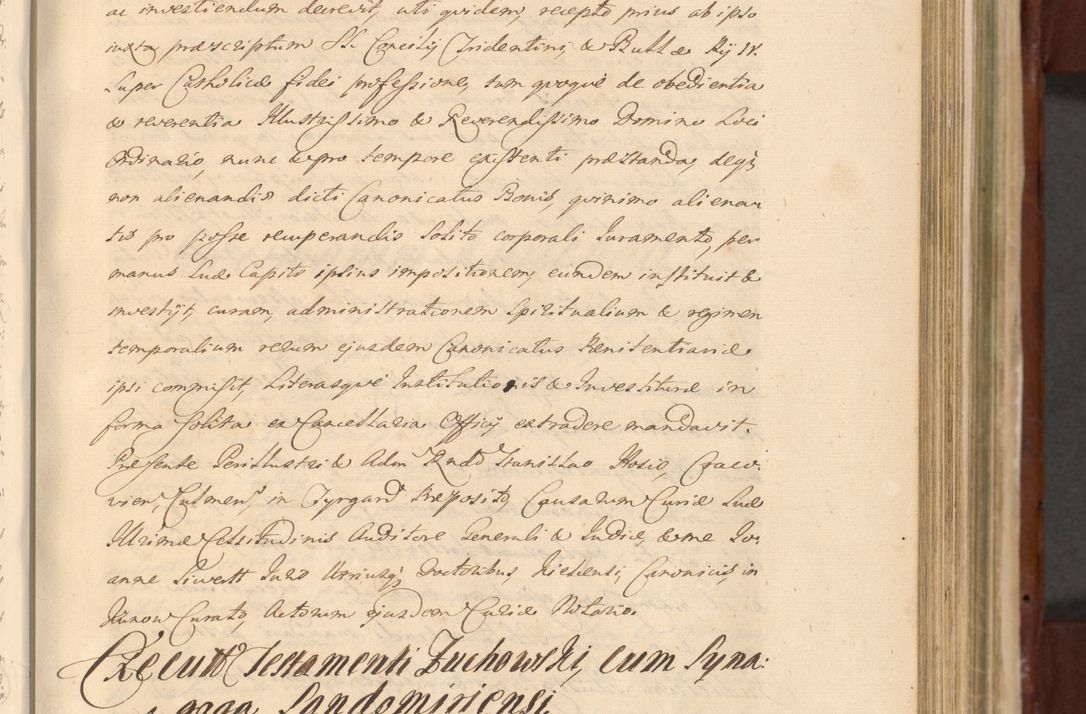 ac investiendum decrevit, uti quidem, recepto prius ab ipso
iuxta præscriptum SSi Concilij Tridentini, & Bullæ Pij IV.
super Catholicæ fidei professione, tum quoque de obedientia
& reverentia Illustrissimo & Reverendissimo Domino Loci
Ordinario, nunc & pro tempore existenti præstanda, deq;
non alienandis dicti Canonicatus Bonis, quinimo aliena-
tis pro posse recuperandis solito corporali Iuramento, per
manus suæ Capiti ipsius impositionem, eundem instituit &
investijt, curam, administrationem Spiritualium & regimen
temporalium rerum ejusdem Canonicatus Pænitentiariæ
ipsi commisit, Literasque Institutionis & Investituræ in
forma solita ex Cancellaria Officij extradere mandavit.
Præsente Perillustri & Adm Rndo Stanislao Hosio, Craco-
vien, Culmen, in Præposito, Causarum Curiæ Suæ
Illrimæ Celsitudinis Auditore Generali & Iudice, & me Jo-
anne Siwerth Juris Utriusq; Doctoribus, Canonicis, in
Curato, Actorum ejusdem Curiæ Notario.
Testamenti Zuchowski, cum Syna:
goga Sandomiriensi